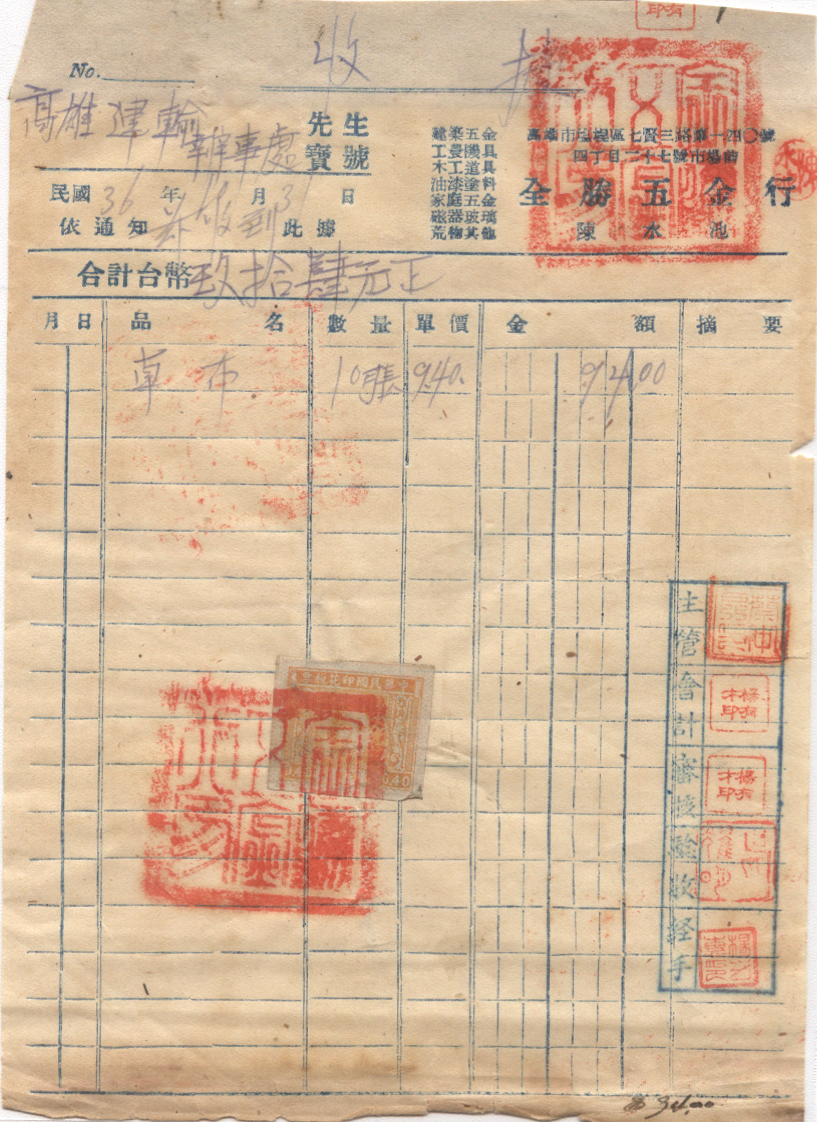 No.
收 據
高雄運輸辦事處 先生 寶號
建築五金
工業機具
木工道具
油漆塗料
家庭五金
磁器玻璃
荒物其他
高雄市塩埕區七賢三路第一四〇號
四丁目二十七號市場前
全勝五金行
陳水池
民國36年 月31日
依通知 收到此據
合計台幣玖拾肆元正
月 日 品名 數量 單價 金額 摘要
草布 10張 9.40. 94.00
中華民國印花稅票
0.40
主管
會計
審核
驗收
經手
楊有木印
楊有木印